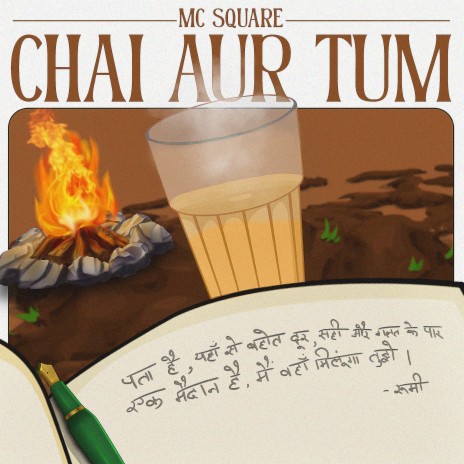 MC SQUARE
CHAI AUR TUM
पता है, यहाँ से बहोत दूर, सही और गलत के पार
एक मैदान है, मैं वहाँ मिलूंगा तुझे ।
- रूमी